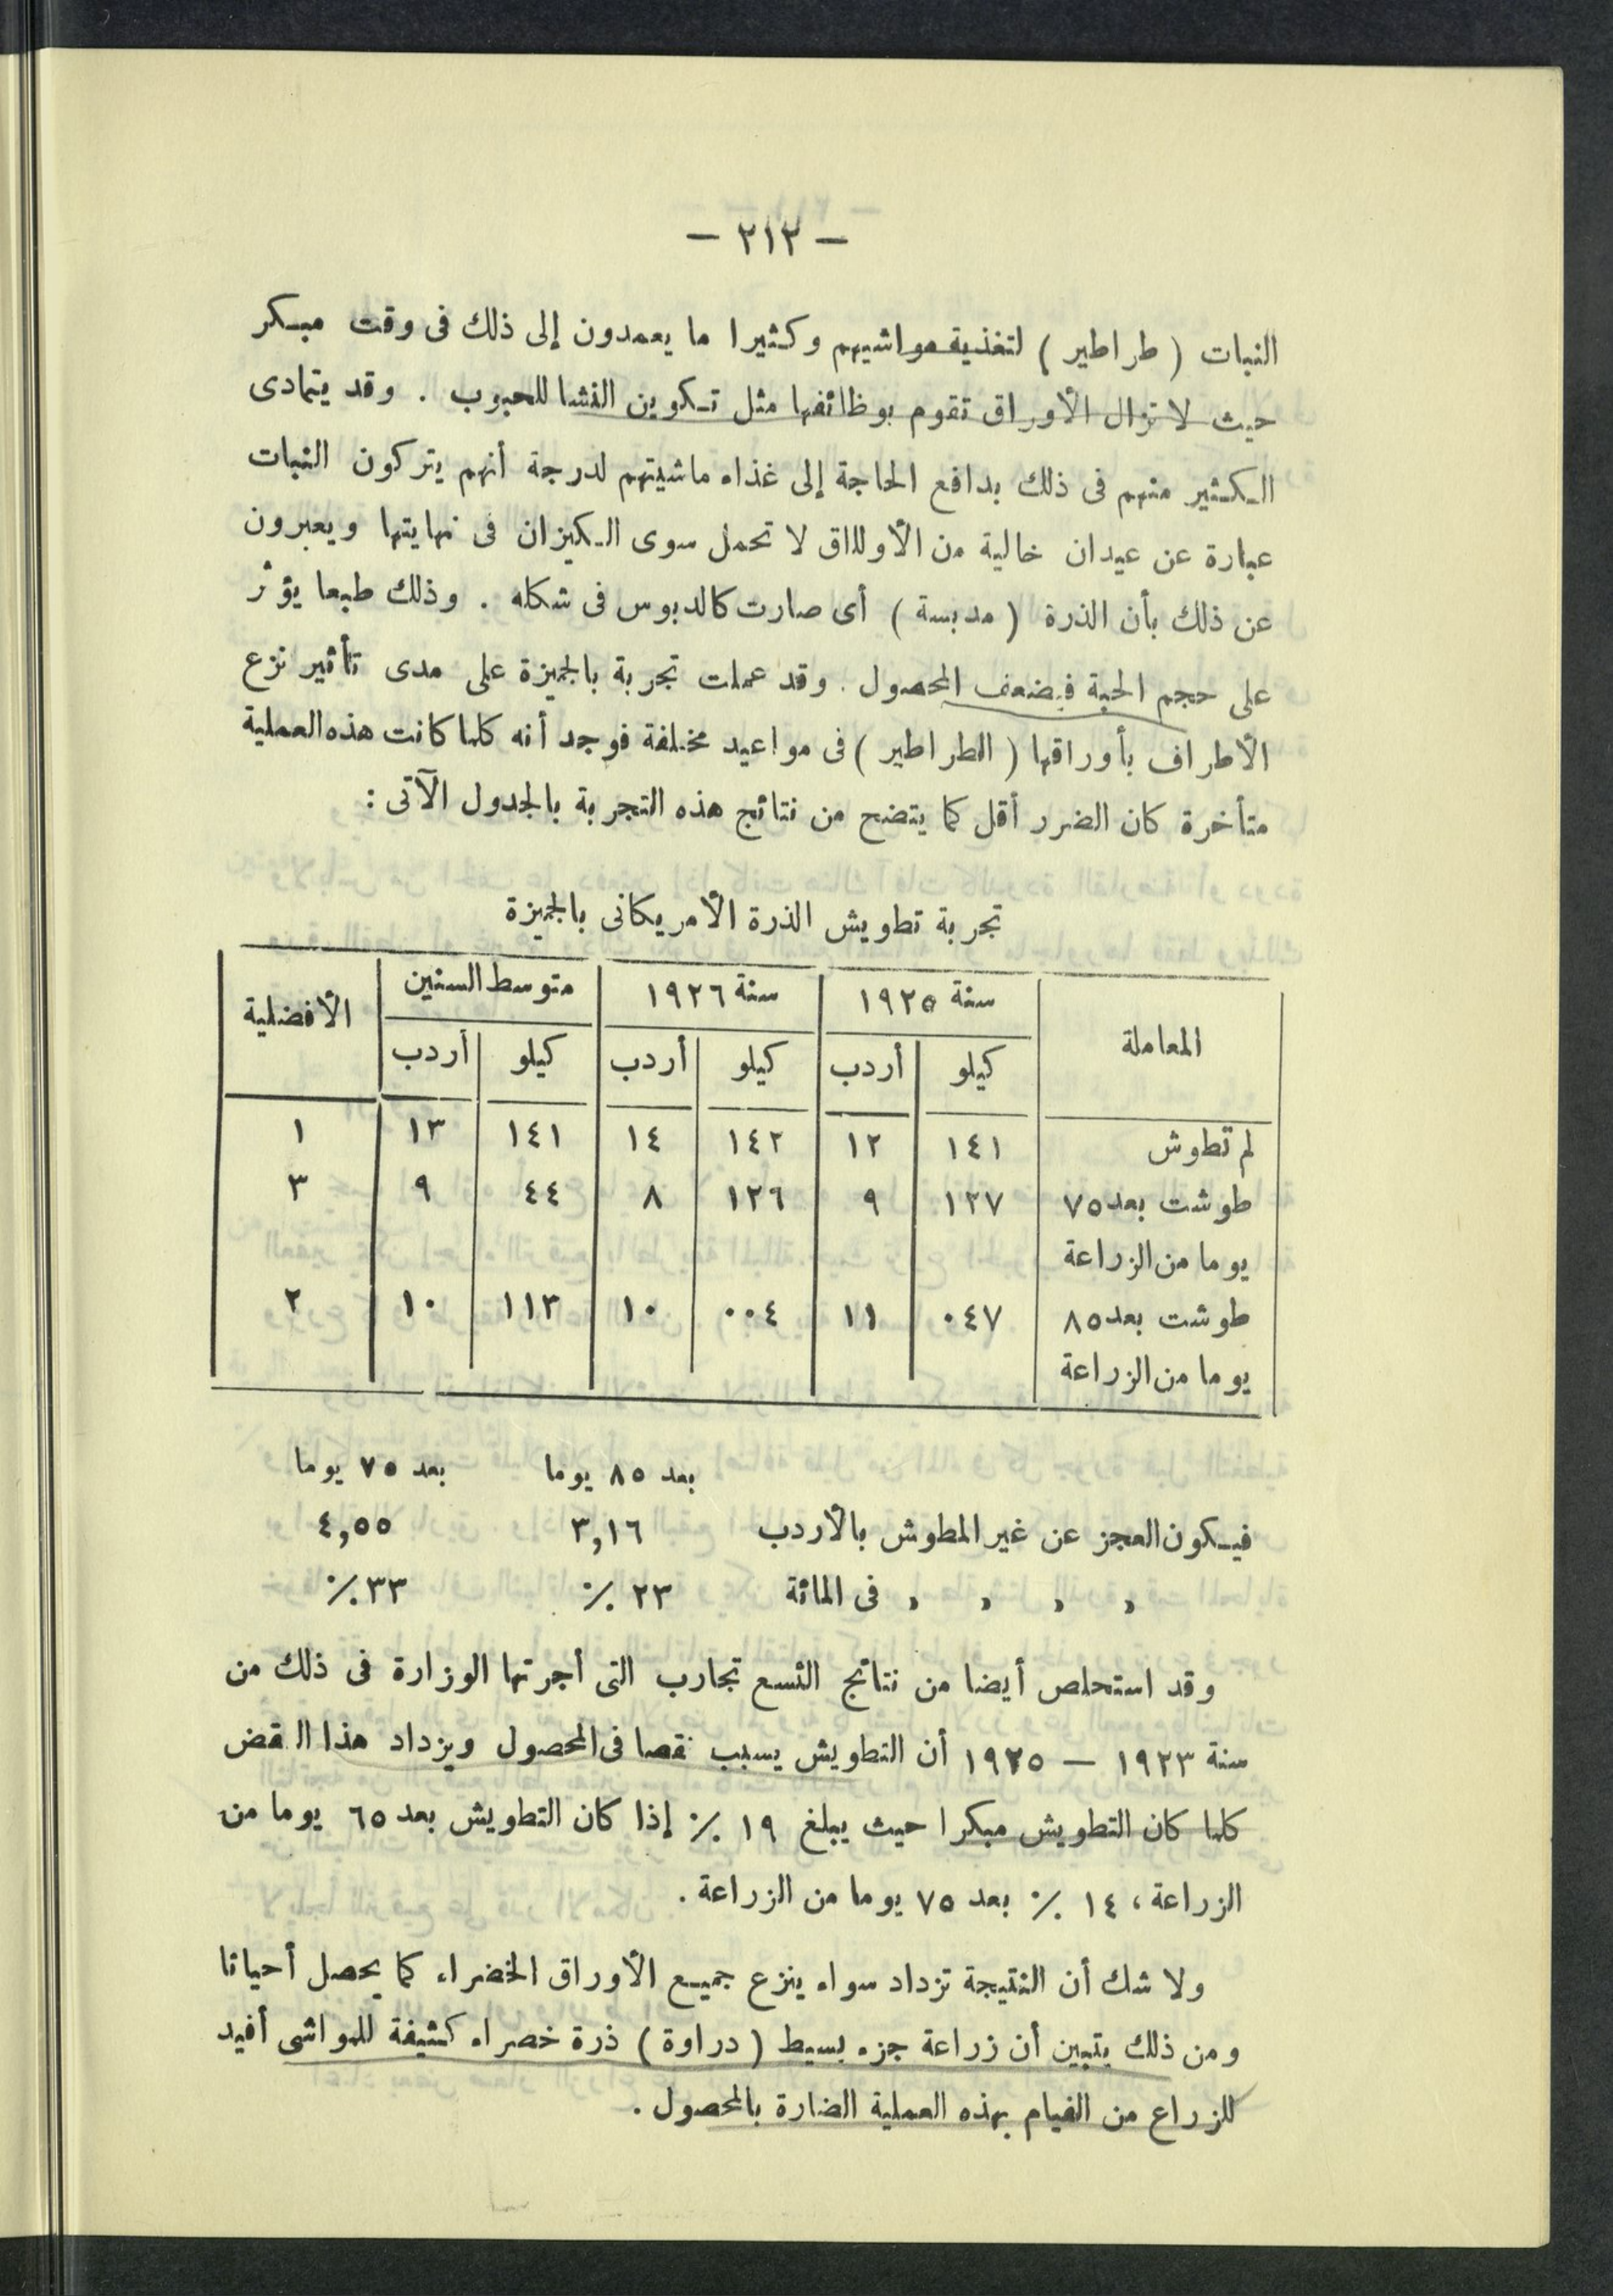 — ٢١٢ —
النبات ( طراطير ) لتغذية مواشيهم وكثيرا ما يعمدون إلى ذلك فى وقت مبكر
حيث لا تزال الأوراق تقوم بوظائفها مثل تكوين النشا للحبوب . وقد يتمادى
الكثير منهم فى ذلك بدافع الحاجة إلى غذاء ماشيتهم لدرجة أنهم يتركون النبات
عبارة عن عيدان خالية من الأولااق لا تحمل سوى الكيزان فى نهايتها ويعبرون
عن ذلك بأن الذرة ( مدبسة ) أى صارت كالدبوس فى شكله . وذلك طبعا يؤثر
على حجم الحبة فيضعف المحصول . وقد عملت تجربة بالجيزة على مدى تأثير نزع
الأطراف بأوراقها ( الطراطير ) فى مواعيد مختلفة فوجد أنه كلما كانت هذه العملية
متأخرة كان الضرر أقل كما يتضح من نتائج هذه التجربة بالجدول الآتى :
تجربة تطويش الذرة الأمريكانى بالجيزة
المعاملة سنة ١٩٢٥ سنة ١٩٢٦ متوسط السنين الأفضلية
كيلو أردب كيلو أردب كيلو أردب
لم تطوش ١٤١ ١٢ ١٤٢ ١٤ ١٤١ ١٣ ١
طوشت بعد ٧٥ ١٢٧ ٩ ١٢٦ ٨ ٤٤ ٩ ٣
يوما من الزراعة
طوشت بعد ٨٥ ٠٤٧ ١١ ٠٠٤ ١٠ ١١٣ ١٠ ٢
يوما من الزراعة
بعد ٨٥ يوما بعد ٧٥ يوما
فيكون العجز عن غير المطوش بالأردب ٣,١٦ ٤,٥٥
« « « « فى المائة ٢٣ ٪ ٣٣ ٪
وقد استحلص أيضا من نتائج التسع تجارب التى أجرتها الوزارة فى ذلك من
سنة ١٩٢٣ — ١٩٢٥ أن التطويش يسبب نقصا فى المحصول ويزداد هذا النقض
كلما كان التطويش مبكرا حيث يبلغ ١٩ ٪ إذا كان التطويش بعد ٦٥ يوما من
الزراعة ، ١٤ ٪ بعد ٧٥ يوما من الزراعة .
ولا شك أن النتيجة تزداد سواء ينزع جميع الأوراق الخضراء كما يحصل أحيانا
ومن ذلك يتبين أن زراعة جزء بسيط ( دراوة ) ذرة خصراء كثيفة للمواشى أفيد
للزراع من القيام بهذه العملية الضارة بالمحصول .